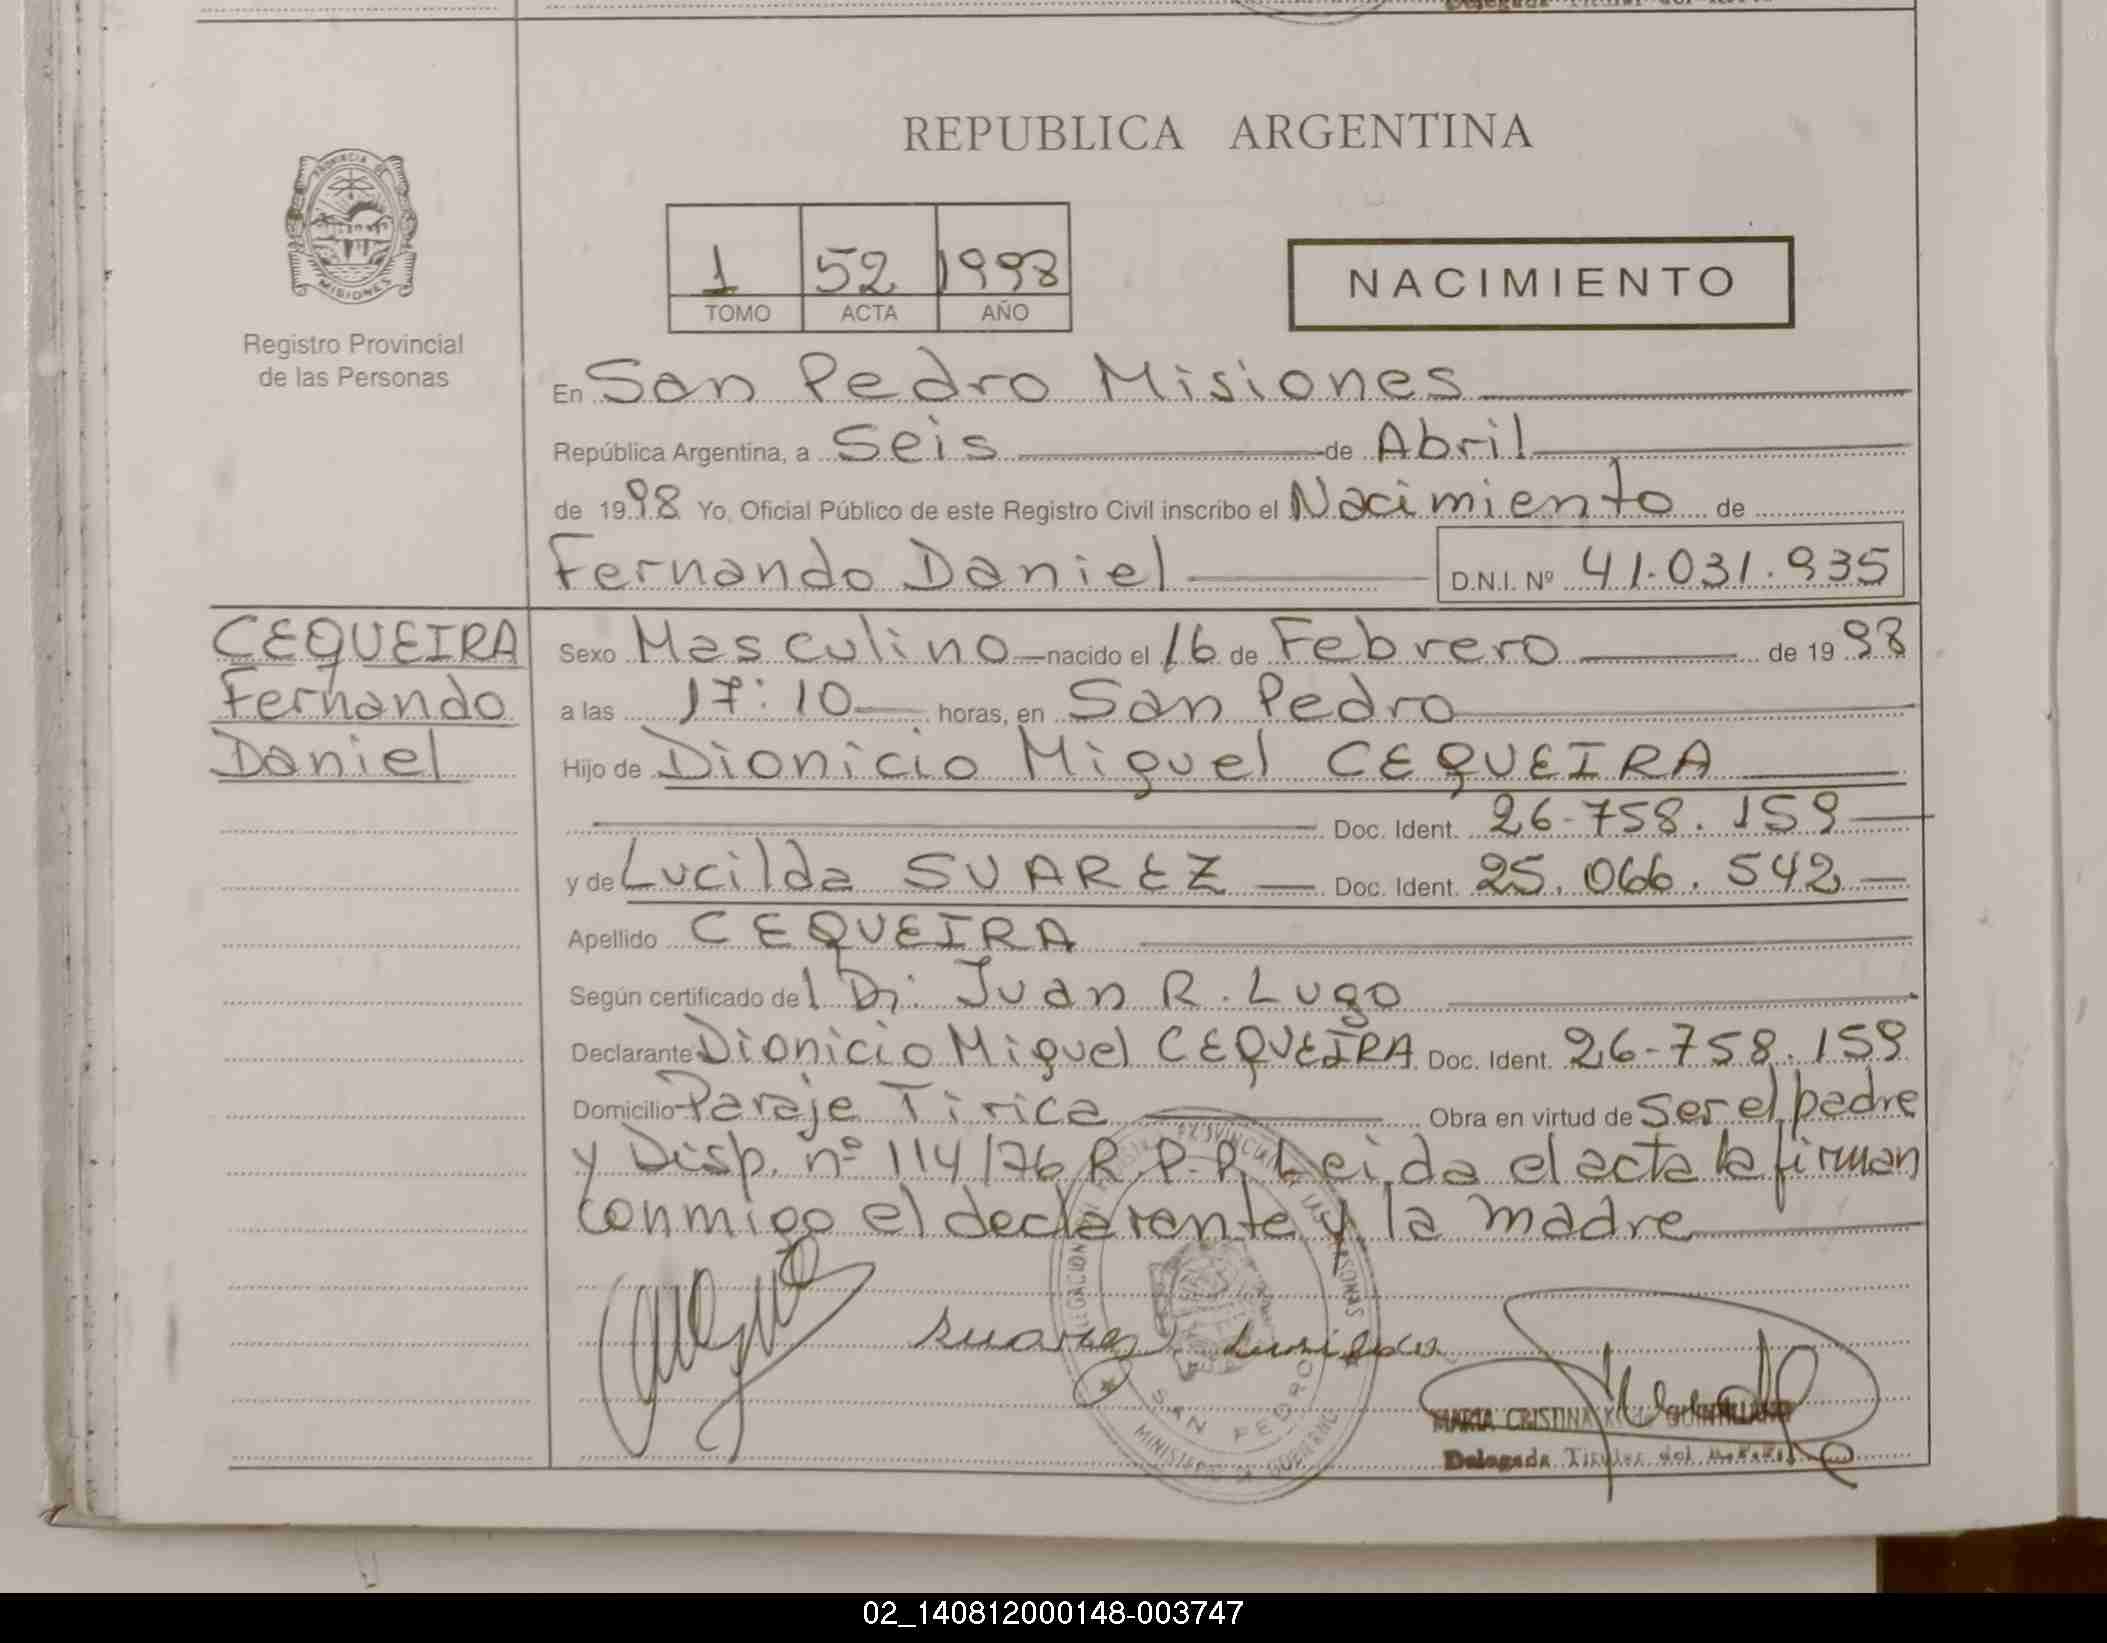 REPUBLICA ARGENTINA
PROVINCIA DE
MISIONES
Registro Provincial
de las Personas
1 52 1998
TOMO ACTA AÑO
NACIMIENTO
En San Pedro Misiones
República Argentina, a Seis de Abril
de 1998 Yo, Oficial Público de este Registro Civil inscribo el Nacimiento de
Fernando Daniel D.N.I. Nº 41.031.935
CEQUEIRA
Fernando
Daniel
Sexo Masculino nacido el 16 de Febrero de 1998
a las 17:10 horas, en San Pedro
Hijo de Dionicio Miguel CEQUEIRA
Doc. Ident. 26-758.159
y de Lucilda SUAREZ Doc. Ident. 25.066.542
Apellido CEQUEIRA
Según certificado del Dr. Juan R. Lugo
Declarante Dionicio Miguel CEQUEIRA Doc. Ident. 26-758.159
Domicilio Paraje Tirica Obra en virtud de Ser el padre
y Disp. nº 114/76 R.P.P. Leida el acta la firman
conmigo el declarante y la madre
Suarez Lucilda
SAN PEDRO
MINISTERIO DE GOBIERNO
MARIA CRISTINA
Delegada Titular del
02_140812000148-003747